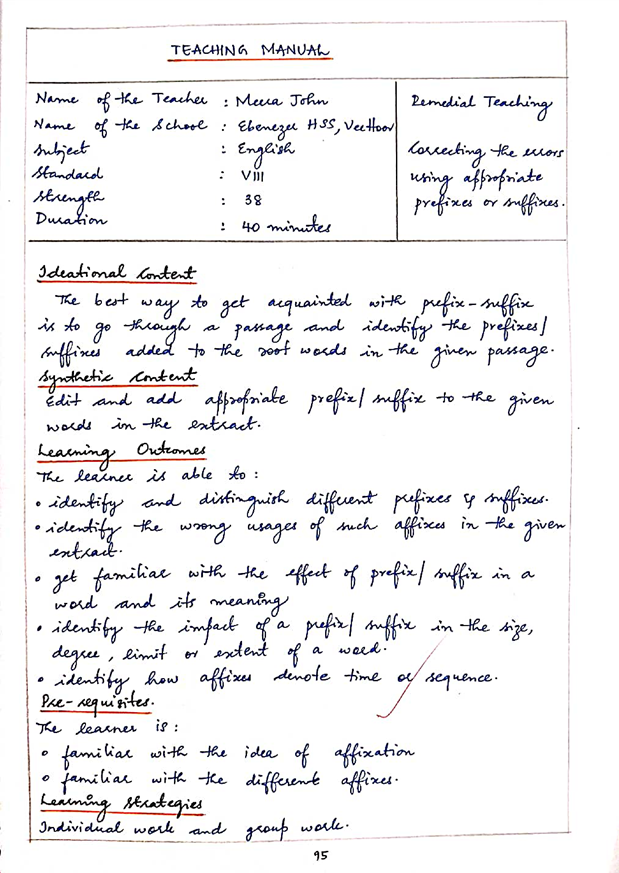 TEACHING MANUAL
Name of the Teacher : Meera John
Name of the School : Ebenezer HSS, Veettoor
Subject : English
Standard : VIII
Strength : 38
Duration : 40 minutes
Remedial Teaching
Correcting the errors
using appropriate
prefixes or suffixes.
Ideational Content
The best way to get acquainted with prefix-suffix
is to go through a passage and identify the prefixes/
suffixes added to the root words in the given passage.
Synthetic Content
Edit and add appropriate prefix/suffix to the given
words in the extract.
Learning Outcomes
The learner is able to:
• identify and distinguish different prefixes & suffixes.
• identify the wrong usages of such affixes in the given
extract.
• get familiar with the effect of prefix/suffix in a
word and its meaning
• identify the impact of a prefix/suffix in the size,
degree, limit or extent of a word.
• identify how affixes denote time or sequence.
Pre-requisites.
The learner is:
• familiar with the idea of affixation
• familiar with the different affixes.
Learning Strategies
Individual work and group work.
95